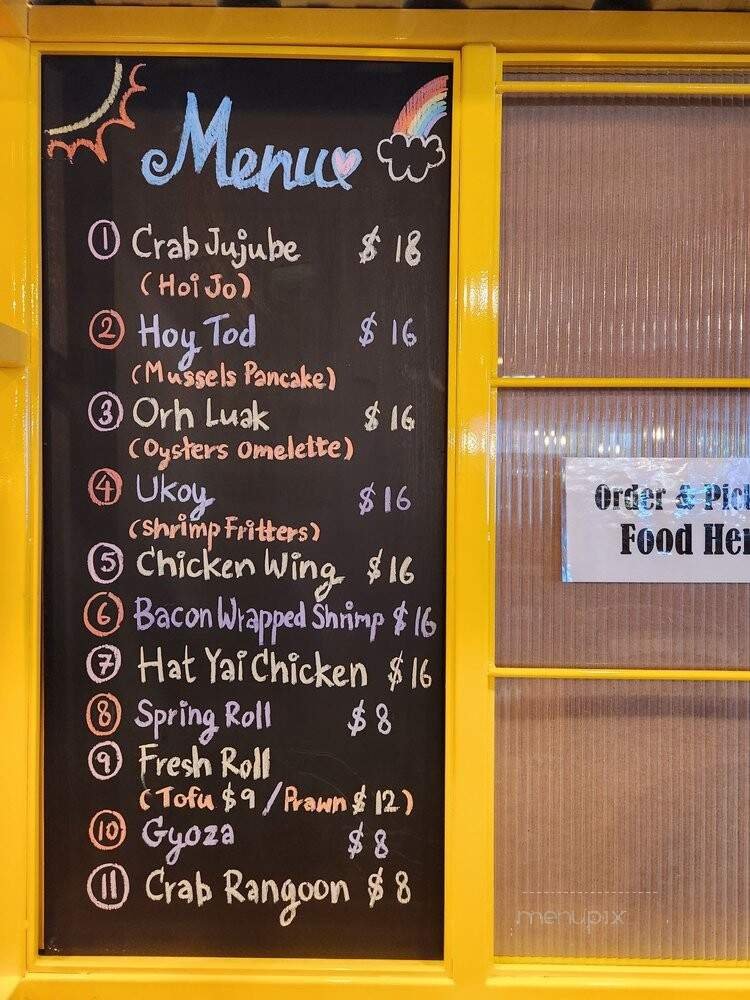 Menu
1 Crab Jujube $ 18
(Hoi Jo)
2 Hoy Tod $ 16
(Mussels Pancake)
3 Orh Luak $ 16
(Oysters Omelette)
4 Ukoy $ 16
(Shrimp Fritters)
5 Chicken Wing $ 16
6 Bacon Wrapped Shrimp $ 16
7 Hat Yai Chicken $ 16
8 Spring Roll $ 8
9 Fresh Roll
(Tofu $ 9 / Prawn $ 12)
10 Gyoza $ 8
11 Crab Rangoon $ 8
Order & Pic
Food He
menupix